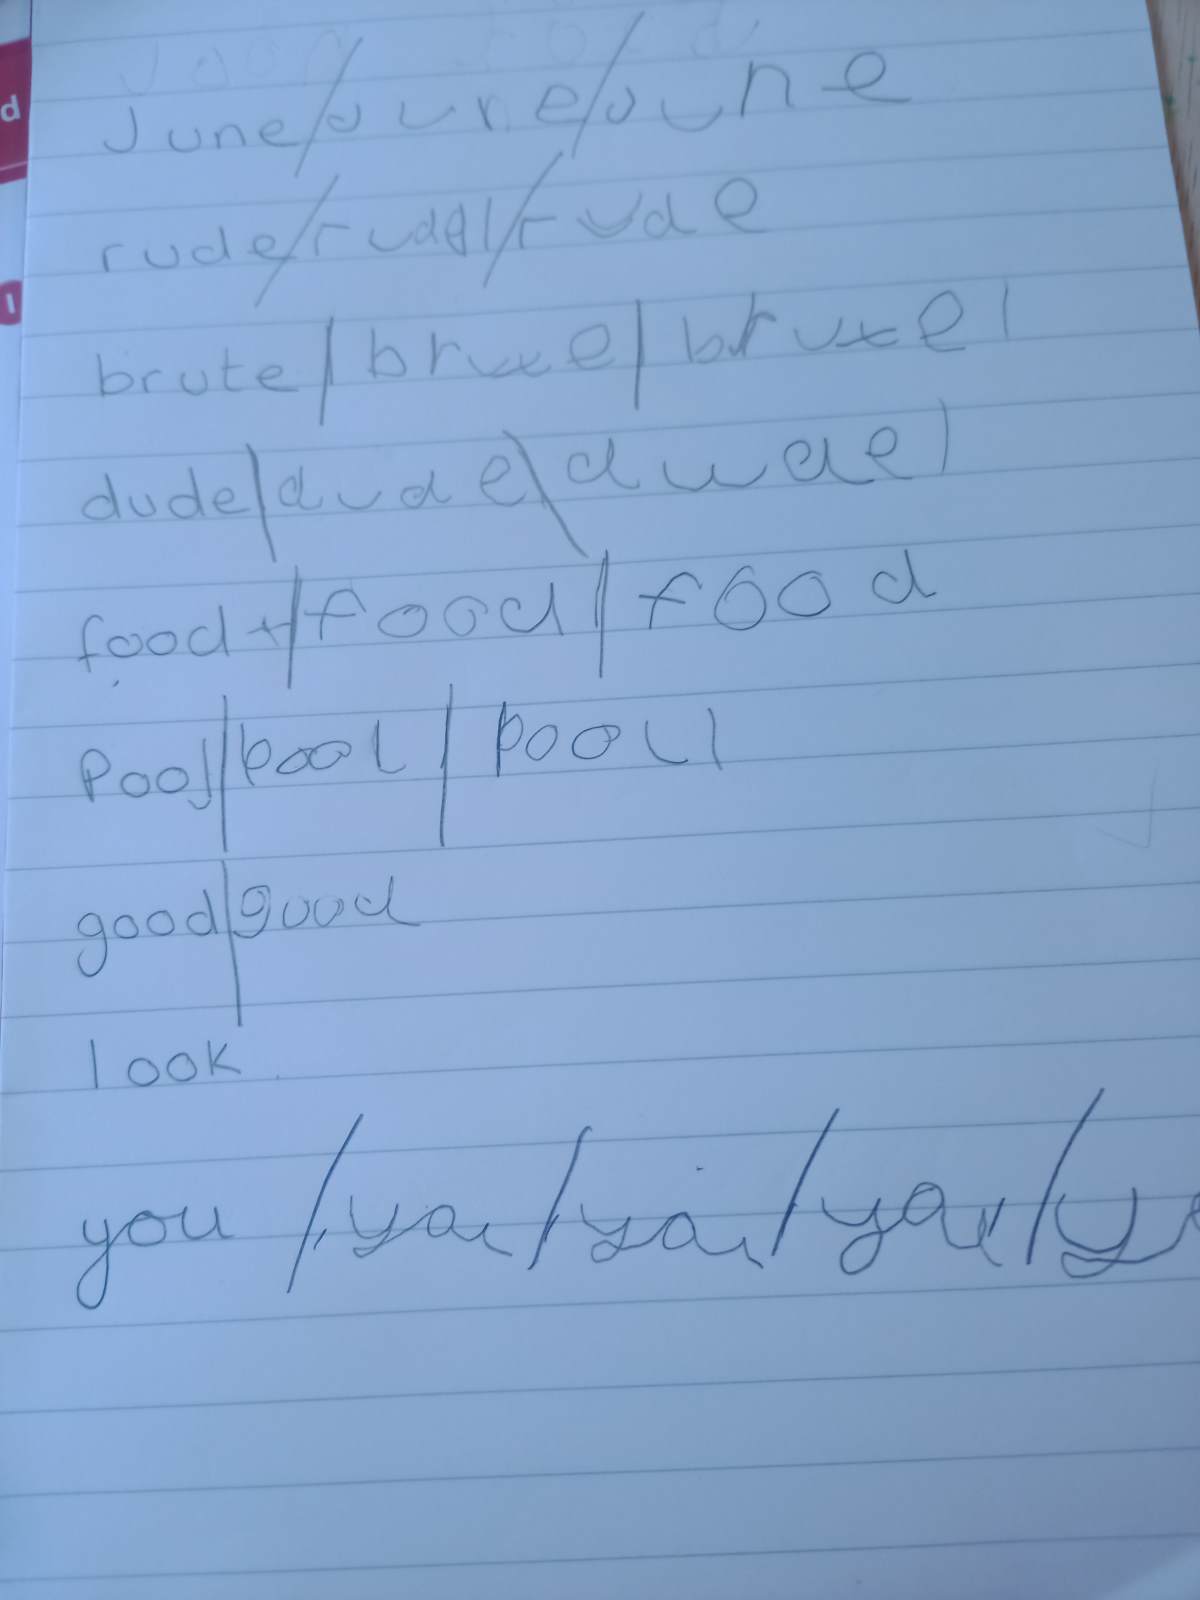 June/June/June
rude/rude/rude
brute/brute/brute/
dude/dude/dude/
food/food/food
Pool/pool/pool/
good/good
look
you/you/you/you/y
d